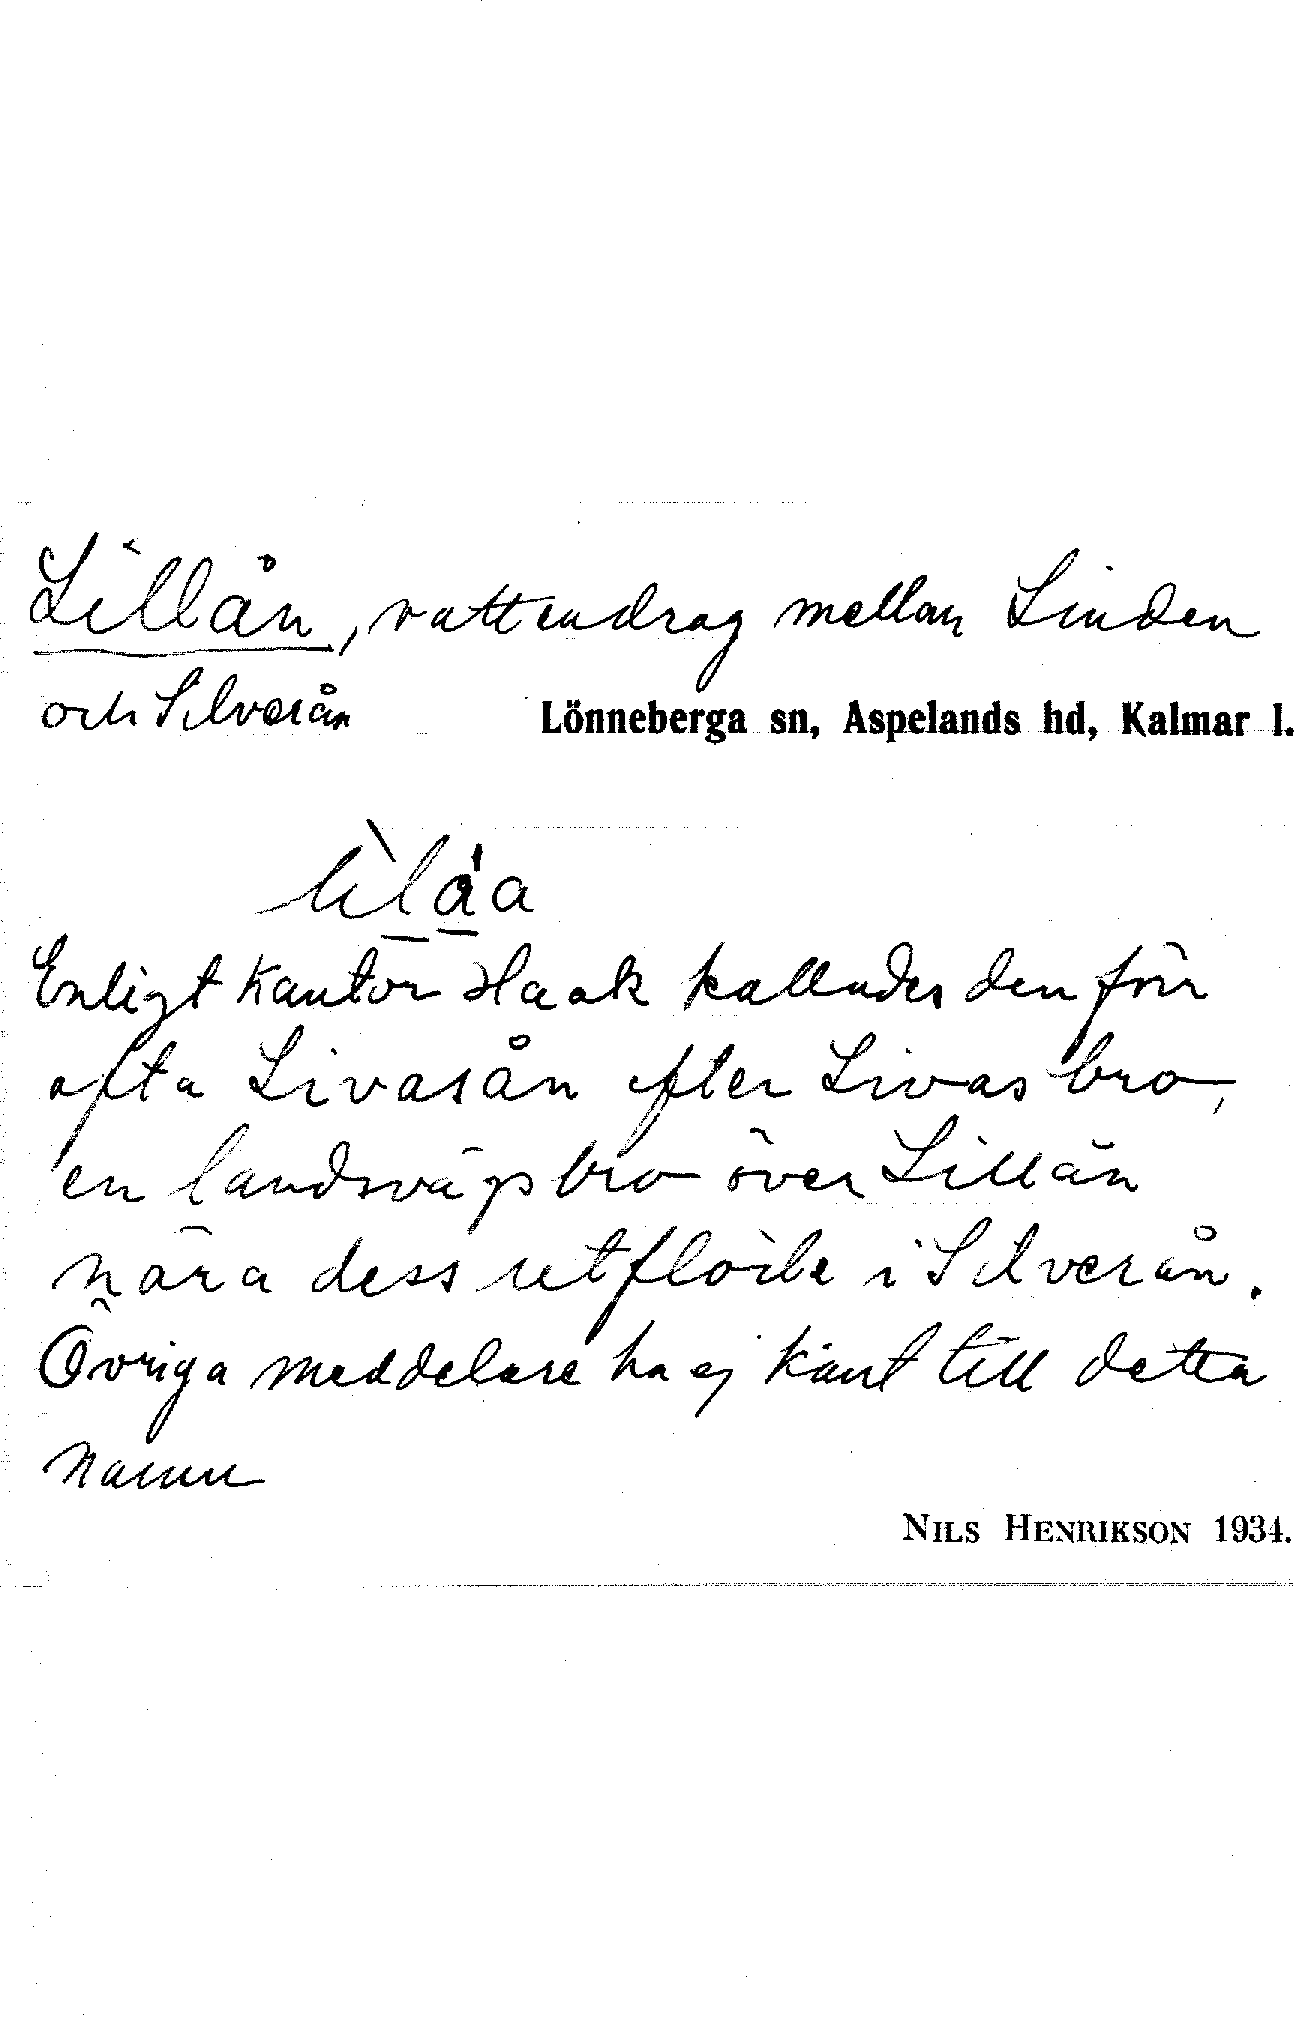 Lillån, vattendrag mellan Linden
och Silverån Lönneberga sn, Aspelands hd, Kalmar l.
Enligt kantor Haak kallades den förr
ofta Livasån efter Livas bro,
en landsvägsbro över Lillån
nära dess utflöde i Silverån.
Övriga meddelare ha ej känt till detta
namn
NILS HENRIKSON 1934.